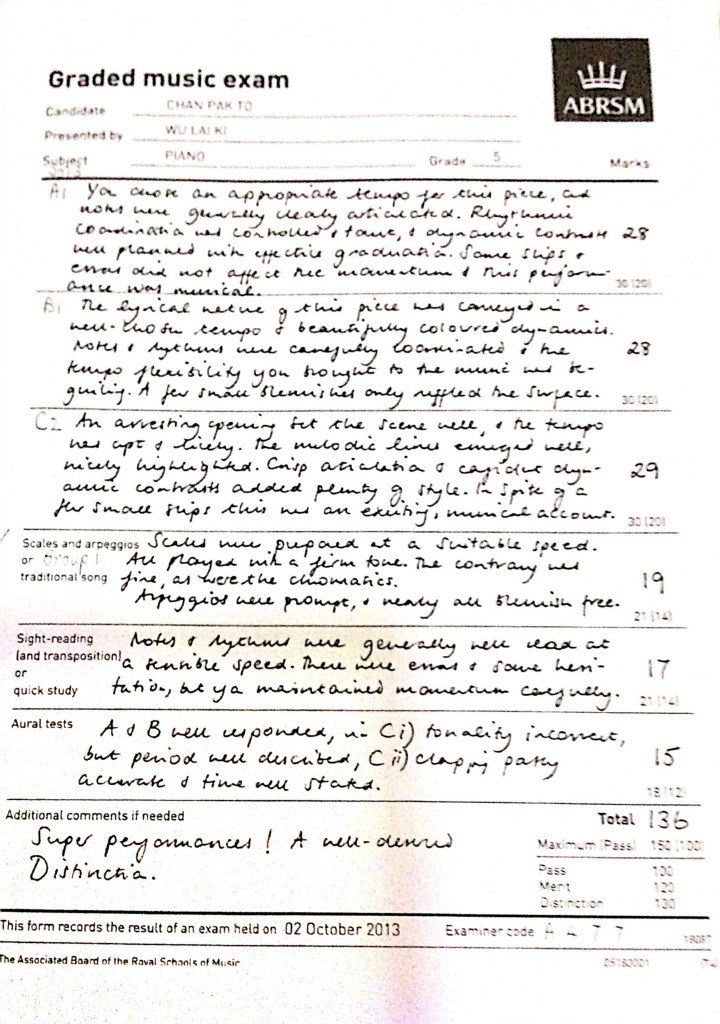 Graded music exam
ABRSM
Candidate CHAN PAK TO
Presented by WU LAI KI
Subject PIANO Grade 5 Marks
2013
A1 You chose an appropriate tempo for this piece, and
notes were generally clearly articulated. Rhythmic
coordination was controlled & taut, & dynamic contrasts 28
well planned with effective graduation. Some slips &
errors did not affect the momentum & this perform-
ance was musical. 30 (20)
B1 The lyrical nature of this piece was conveyed in a
well-chosen tempo & beautifully coloured dynamics.
Notes & rythms were carefully coordinated & the 28
tempo flexibility you brought to the music was be-
guiling. A few small blemishes only ruffled the surface. 30 (20)
C2 An arresting opening set the scene well, & the tempo
was apt & lively. The melodic lines emerged well,
nicely highlighted. Crisp articulation & confident dyn- 29
amic contrasts added plenty of style. In spite of a
few small slips this was an exciting, musical account. 30 (20)
Scales and arpeggios Scales were prepared at a suitable speed.
or Group 1 All played with a firm tone. The contrary was
traditional song fine, as were the chromatics. 19
Arpeggios were prompt, & nearly all blemish free. 21 (14)
Sight-reading Notes & rythms were generally well read at
(and transposition) a sensible speed. There were errors & some hesi- 17
or
quick study tation, but you maintained momentum carefully. 21 (14)
Aural tests A & B well responded, in C i) tonality incorrect,
but period well described, C ii) clapping partly 15
accurate & time well stated. 18 (12)
Additional comments if needed Total 136
Super performances! A well-deserved Maximum (Pass) 150 (100)
Distinction. Pass 100
Merit 120
Distinction 130
This form records the result of an exam held on 02 October 2013 Examiner code A 4 7 7
The Associated Board of the Royal Schools of Music